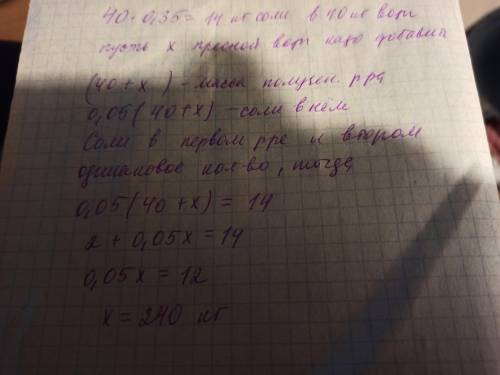 40 · 0,35 = 14 кг соли в 40 кг воды
пусть х пресной воды надо добавить
(40 + х) - масса получен. р-ра
0,05(40+х) - соли в нём
Соли в первом р-ре и втором
одинаковое кол-во, тогда
0,05(40 + х) = 14
2 + 0,05х = 14
0,05х = 12
х = 240 кг